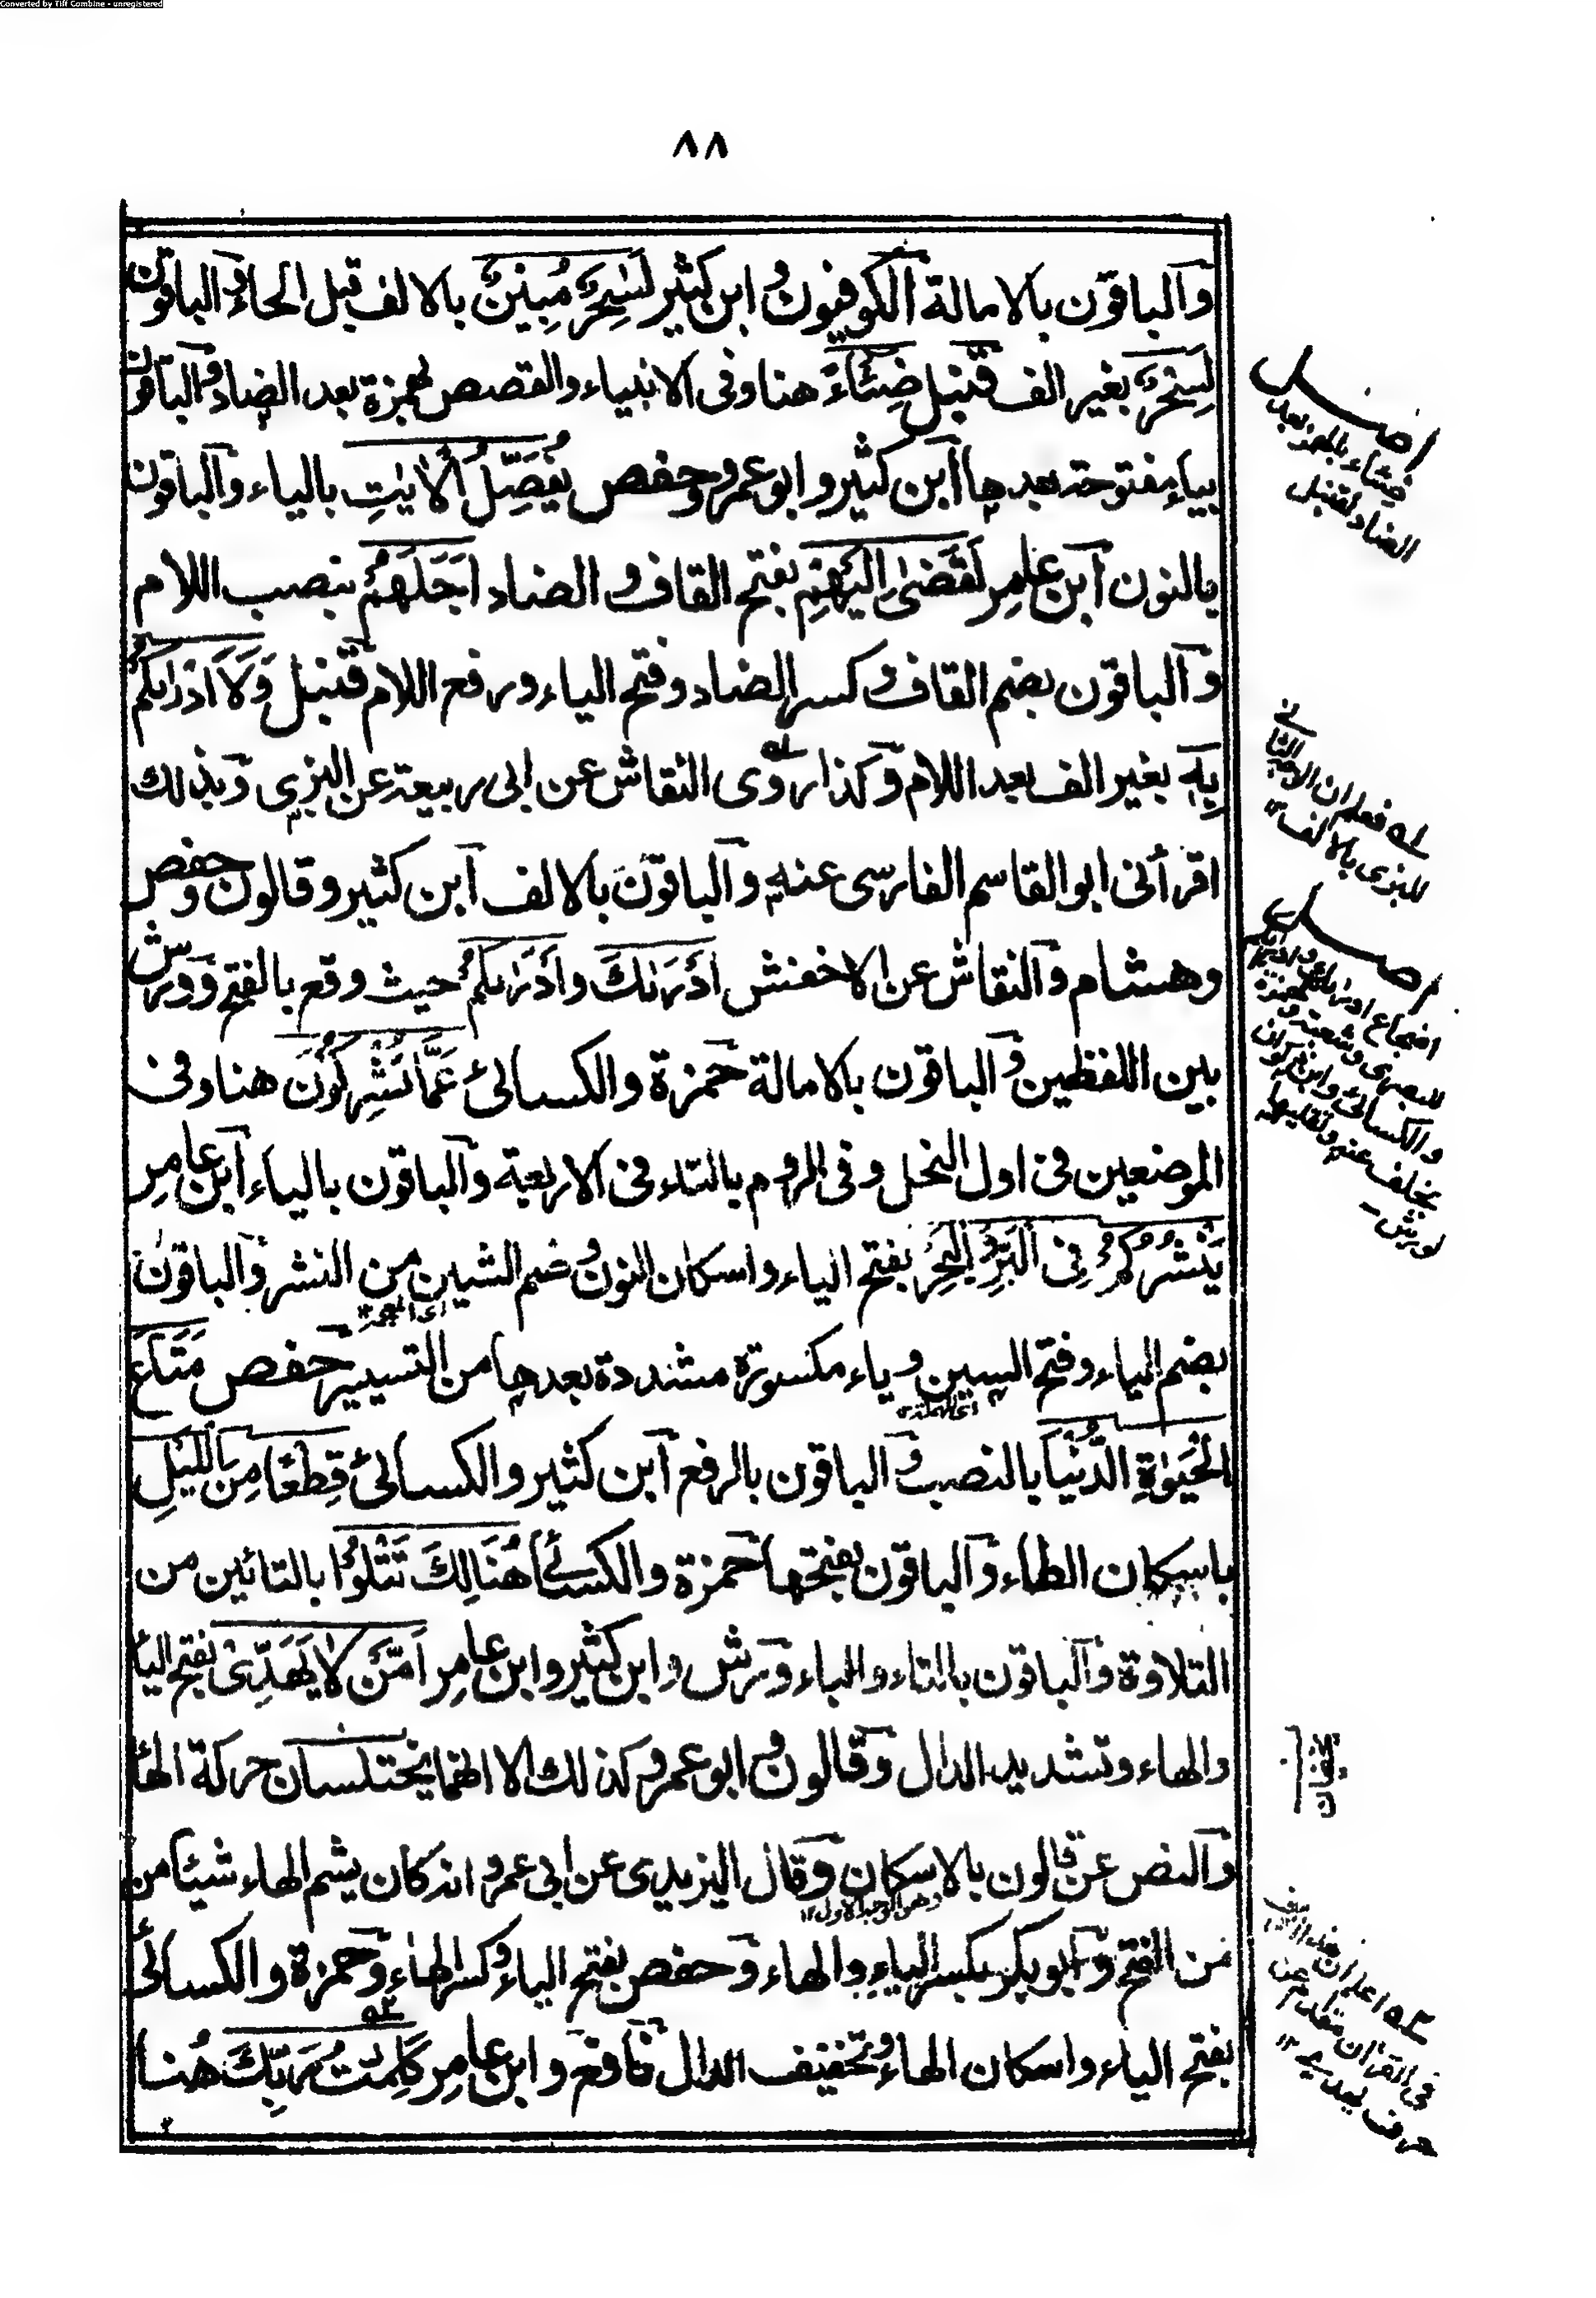 Converted by Tiff Combine - unregistered
٨٨
والباقون بالامالة الكوفيون وابن كثير لَسٰحِرٌ مُبِينٌ بالالف قبل الحاء والباقون
لَسِحْرٌ بغير الف قنبل ضِئَاءً هنا وفى الانبياء والقصص بهمزة بعد الضاد والباقون
بياء مفتوحة بعدها ابن كثير وابو عمرو وحفص يُفَصِّلُ الْاٰيٰتِ بالياء والباقون
بالنون ابن عامر لَقَضٰى اِلَيْهِمْ بفتح القاف والضاد اَجَلَهُمْ بنصب اللام
والباقون بضم القاف وكسر الضاد وفتح الياء ورفع اللام قنبل وَلَاَدْرٰىكُمْ
بِهٖ بغير الف بعد اللام وكذا روى النقاش عن ابى ربيعة عن البزى وبذلك
اقرأنى ابو القاسم الفارسى عنه والباقون بالالف ابن كثير وقالون وحفص
وهشام والنقاش عن الاخفش اَدْرٰىكَ وَاَدْرٰىكُمْ حيث وقع بالفتح وورش
بين اللفظين والباقون بالامالة حمزة والكسائى عَمَّا تُشْرِكُوْنَ هنا وفى
الموضعين فى اول النحل وفى الروم بالتاء فى الاربعة والباقون بالياء ابن عامر
يَنْشُرُكُمْ فِى الْبَرِّ وَالْبَحْرِ بفتح الياء واسكان النون وضم الشين من النشر والباقون
اى المعجمة
بضم الياء وفتح السين وياء مكسورة مشددة بعدها من التسيير حفص مَتَاعَ
اى المهملة
الْحَيٰوةِ الدُّنْيَا بالنصب والباقون بالرفع ابن كثير والكسائى قِطْعًا مِنَ الَّيْلِ
باسكان الطاء والباقون بفتحها حمزة والكسائى هُنَالِكَ تَتْلُوْا بالتائين من
التلاوة والباقون بالتاء والباء ورش وابن كثير وابن عامر اَمَّنْ لَا يَهَدِّىْ بفتح الياء
والهاء وتشديد الدال وقالون وابو عمرو كذلك الا انهما يختلسان حركة الهاء
والنص عن قالون بالاسكان وقال اليزيدى عن ابى عمرو انه كان يشم الهاء شيئا من
وهو الوجه الاول ١٢
من الفتح وابو بكر بكسر الياء والهاء وحفص بفتح الياء وكسر الهاء وحمزة والكسائى
بفتح الياء واسكان الهاء وتخفيف الدال نافع وابن عامر كَلِمٰتُ رَبِّكَ هُنا
ضئاء بالهمز بعد
الضاد لقنبل
للبزى بالالف ١٢
للبصرى وشعبة و
والكسائى وابن ذكوان
بخلف عنه وتقليله
لورش
يخفيان
فى القران
حرف